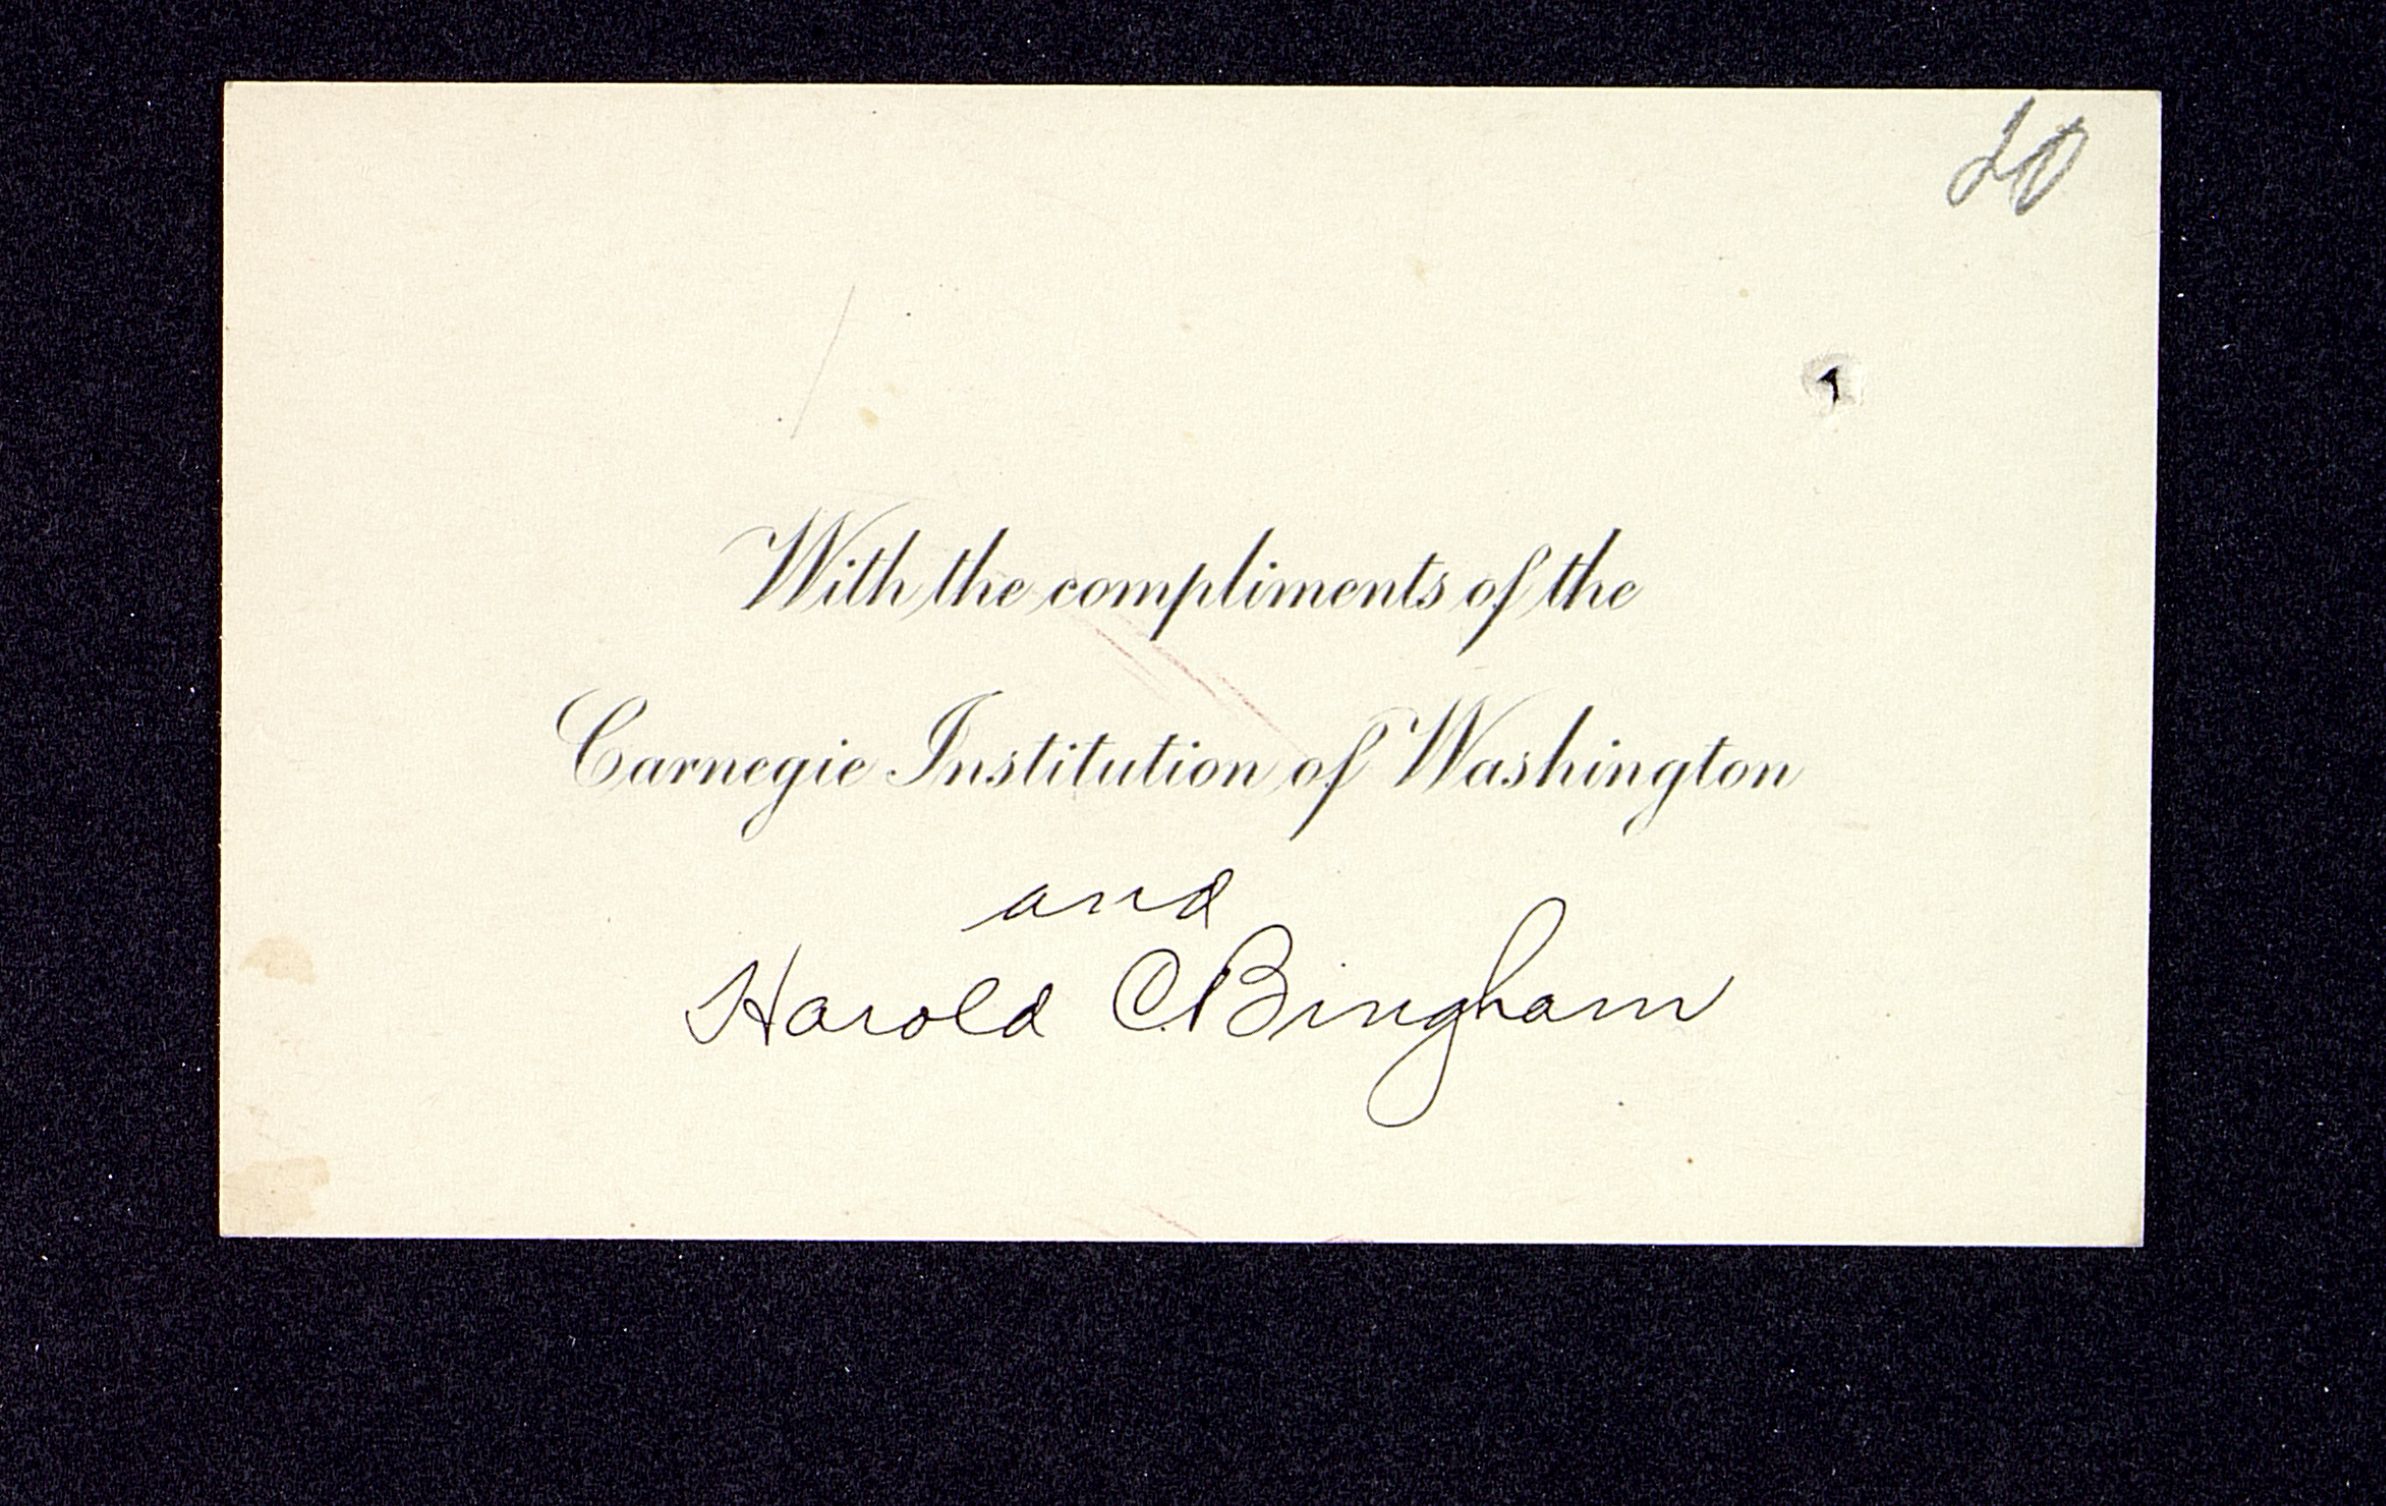 20
With the compliments of the
Carnegie Institution of Washington
and
Harold C. Bingham